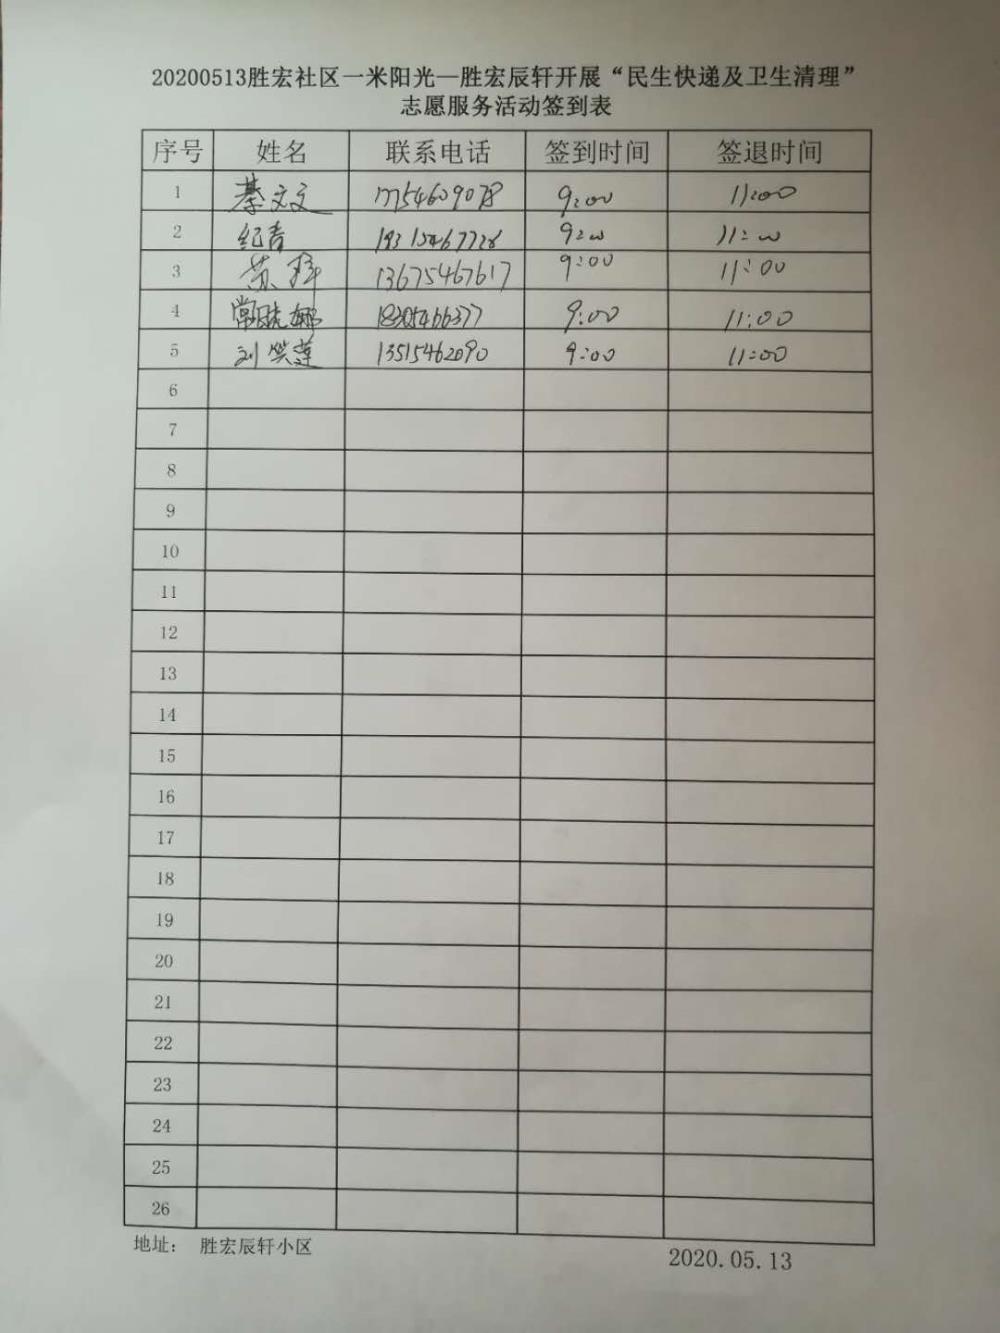 20200513胜宏社区一米阳光—胜宏辰轩开展“民生快递及卫生清理”
志愿服务活动签到表
序号 姓名 联系电话 签到时间 签退时间
1 綦文文 17754609078 9:00 11:00
2 纪青 9:00 11:00
3 苏 13675467617 9:00 11:00
4 常晓娜 9:00 11:00
5 刘笑莲 13515462090 9:00 11:00
6
7
8
9
10
11
12
13
14
15
16
17
18
19
20
21
22
23
24
25
26
地址： 胜宏辰轩小区 2020.05.13